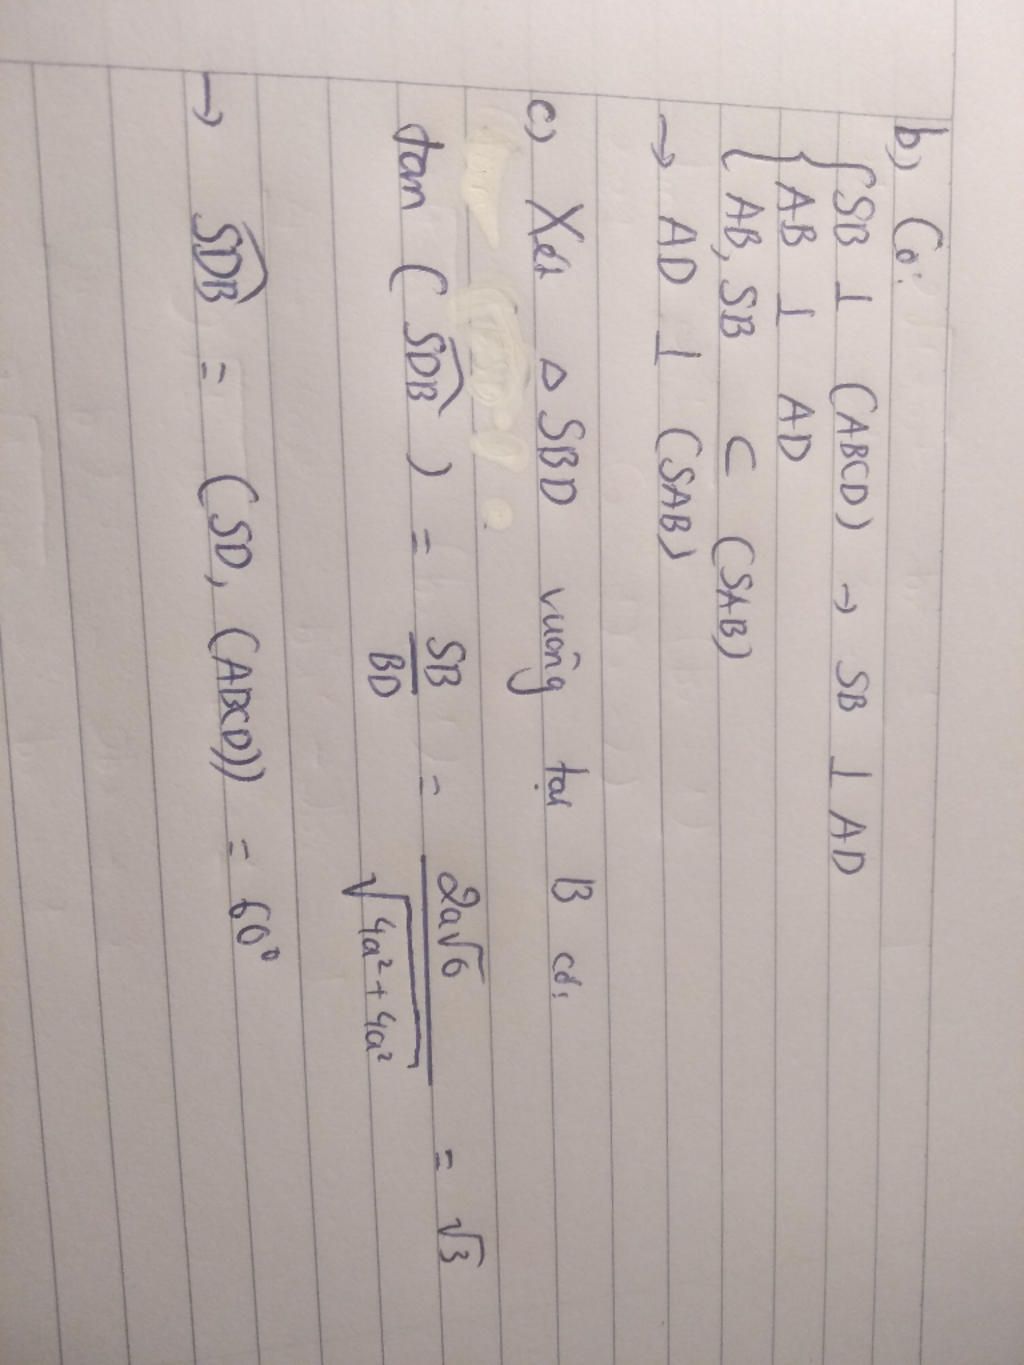 b) Có:
{ SB ⊥ (ABCD) → SB ⊥ AD
AB ⊥ AD
AB, SB ⊂ (SAB)
→ AD ⊥ (SAB)
c) Xét △ SBD vuông tại B có:
tan ( \widehat{SDB} ) = \frac{SB}{BD} = \frac{2a√6}{\sqrt{4a²+4a²}} = √3
→ \widehat{SDB} = (SD, (ABCD)) = 60°